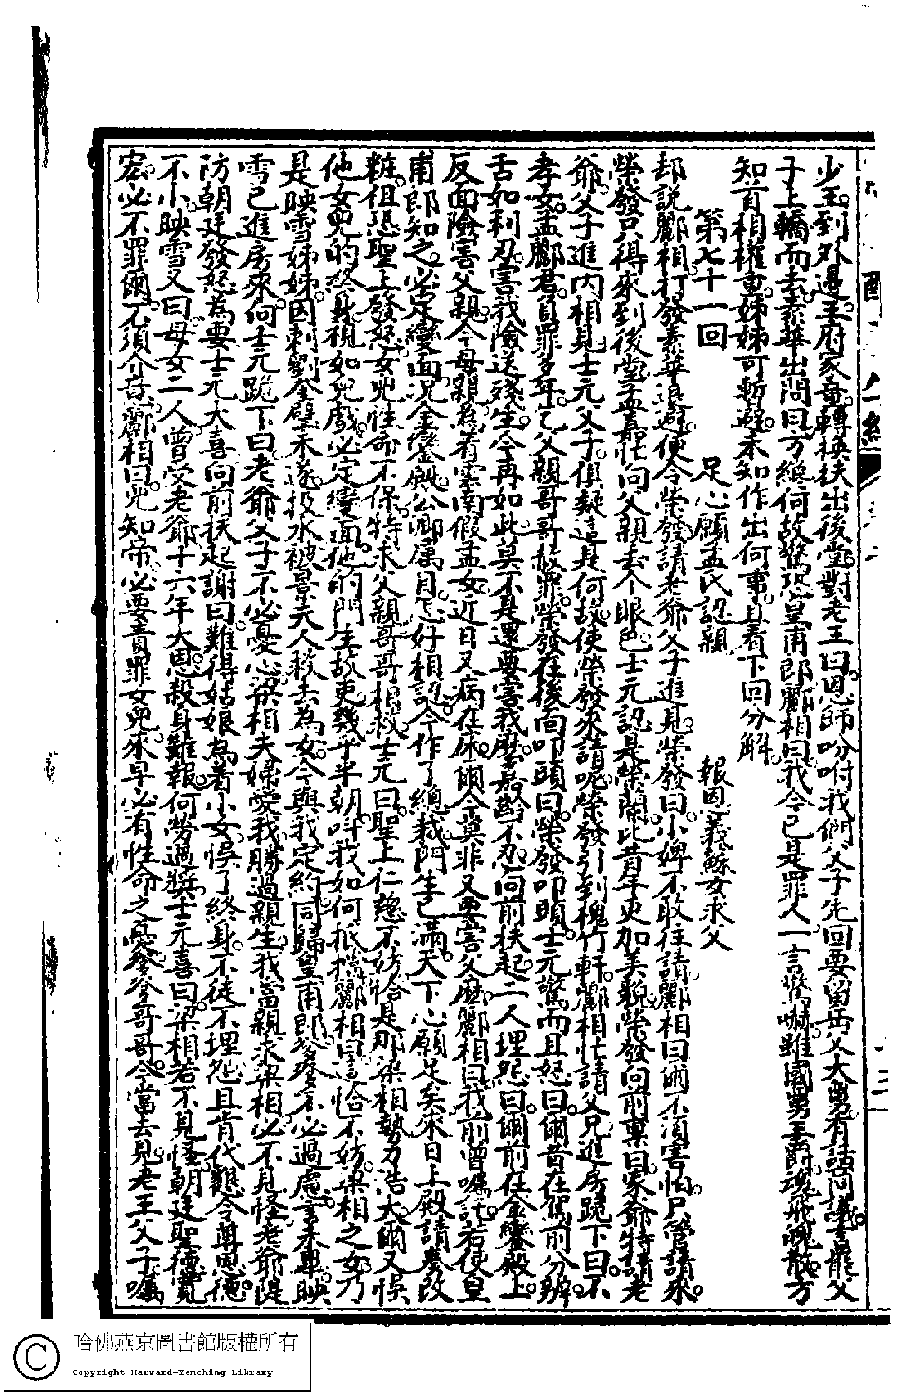 少王到外邊王府家奇轉換扶出後堂對老王曰恩師吩咐我們父子先回要留岳父大舅有話同議王罷父
子上轎而去素華出問曰方纔何故驚恐皇甫郎酈相曰我今已是罪人一言驚嚇雖國舅王爵魂飛魄散方
知首相權重姊姊可暫避未知作出何事且看下回分解
第七十一回 足心願孟氏認親 報恩義蘇女求父
却說酈相打發素華退避便令榮發請老爺父子進見榮發曰小婢不敢往請酈相曰爾不須害怕只管請來
榮發只得來到後堂孟嘉忙向父親丟个眼色士元認是榮蘭比昔年更加美貌榮發向前稟曰家爺特請老
爺父子進內相見士元父子俱疑這是何故使榮發來請呢榮發引到槐竹軒酈相忙請父兄進房跪下曰不
孝女孟酈君負罪多年乞父親哥哥赦罪榮發在後面叩頭曰榮發叩頭士元驚而且怒曰爾昔在駕前分辨
舌如利刃害我險送殘生今再如此莫不是還要害我麽嘉齡不忍向前扶起二人埋怨曰爾前在金鑾殿上
反面險害父親今母親爲着雲南假孟女近日又病在床爾今莫非又要害父麽酈相曰我前曾囑託若使皇
甫郎知之必定變面況金鑾殿公卿屬目怎好相認今作了總裁門生已滿天下心願足矣來日上殿請裝改
粧但恐聖上發怒女兒性命不保特求父親哥哥相救士元曰聖上仁慈不妨恰是那梁相勢力浩大爾又悞
他女兒的終身視如兒戲必定變面他的門生故吏幾乎半朝叫我如何抵擋酈相曰這恰不妨梁相之女乃
是映雪姊姊因刺劉奎璧未遂投水被景夫人救去為女今與我定約同歸皇甫郎爹爹不必過慮言未畢映
雪已進房來向士元跪下曰老爺父子不必憂心梁相夫婦愛我勝過親生我當親求梁相必不見怪老爺隄
防朝廷發怒為要士元大喜向前扶起謝曰難得姑娘為着小女悞了終身不徒不埋怨且肯代難今尊恩德
不小映雪又曰母女二人曾受老爺十六年大恩殺身難報何勞過獎士元喜曰梁相若不見怪朝廷聖德寬
宏必不罪爾无須介意酈相曰兒知帝必要責罪女兒來早必有性命之憂爹爹哥哥今當去見老王父子囑
哈佛燕京圖書館版權所有
Copyright Harvard-Yenching Library